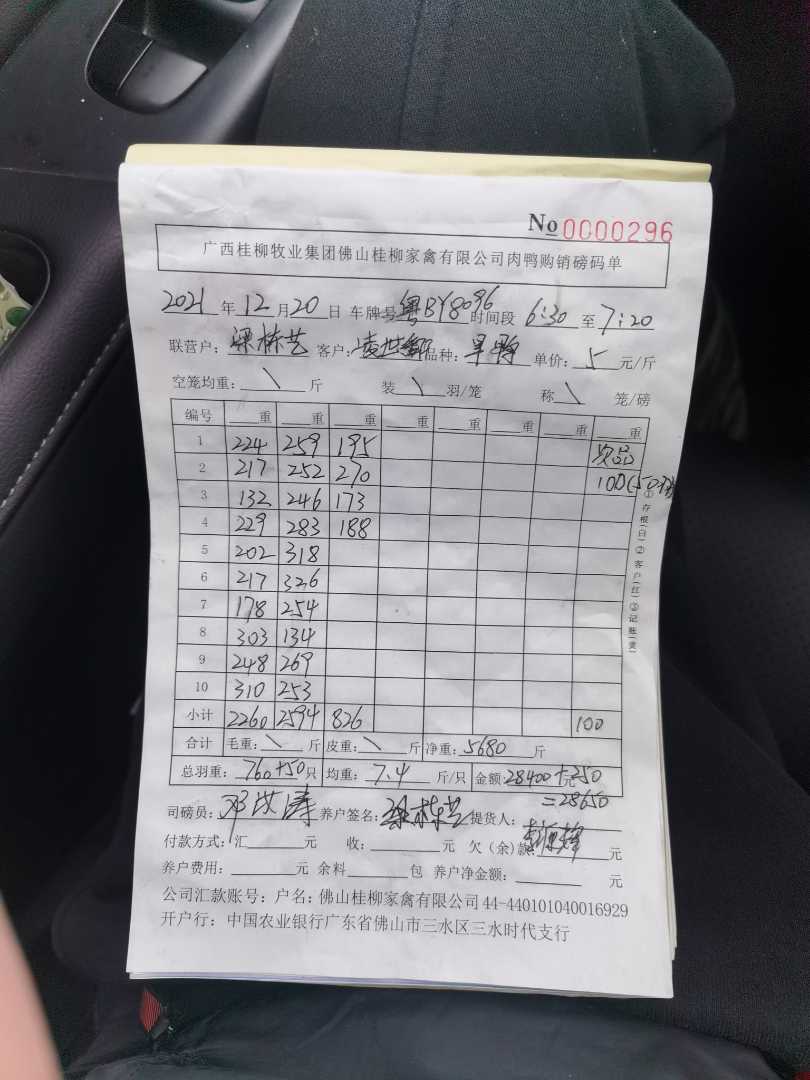 No 0000296
广西桂柳牧业集团佛山桂柳家禽有限公司肉鸭购销磅码单
2021 年 12 月 20 日 车牌号 粤BY8096 时间段 6:30 至 7:20
联营户: 梁栋艺 客户: 品种: 单价: 5 元/斤
空笼均重: \ 斤 装 \ 羽/笼 称 \ 笼/磅
编号 重 重 重 重 重 重 重 重
1 224 259 195 次品
2 217 252 270 100(50只)
3 132 246 173
4 229 283 188
5 202 318
6 217 326
7 178 254
8 303 134
9 248 269
10 310 253
小计 2260 2594 826 100
合计 毛重: \ 斤 皮重: \ 斤 净重: 5680 斤
总羽重: 760+50 只 均重: 7.4 斤/只 金额: 28400+250 元
=28650
司磅员: 养户签名: 梁栋艺 提货人:
付款方式: 汇 元 收: 元 欠(余)款: 元
养户费用: 元 余料 包 养户净金额: 元
公司汇款账号: 户名: 佛山桂柳家禽有限公司 44-440101040016929
开户行: 中国农业银行广东省佛山市三水区三水时代支行
①存根(白)②客户(红)③记账(黄)